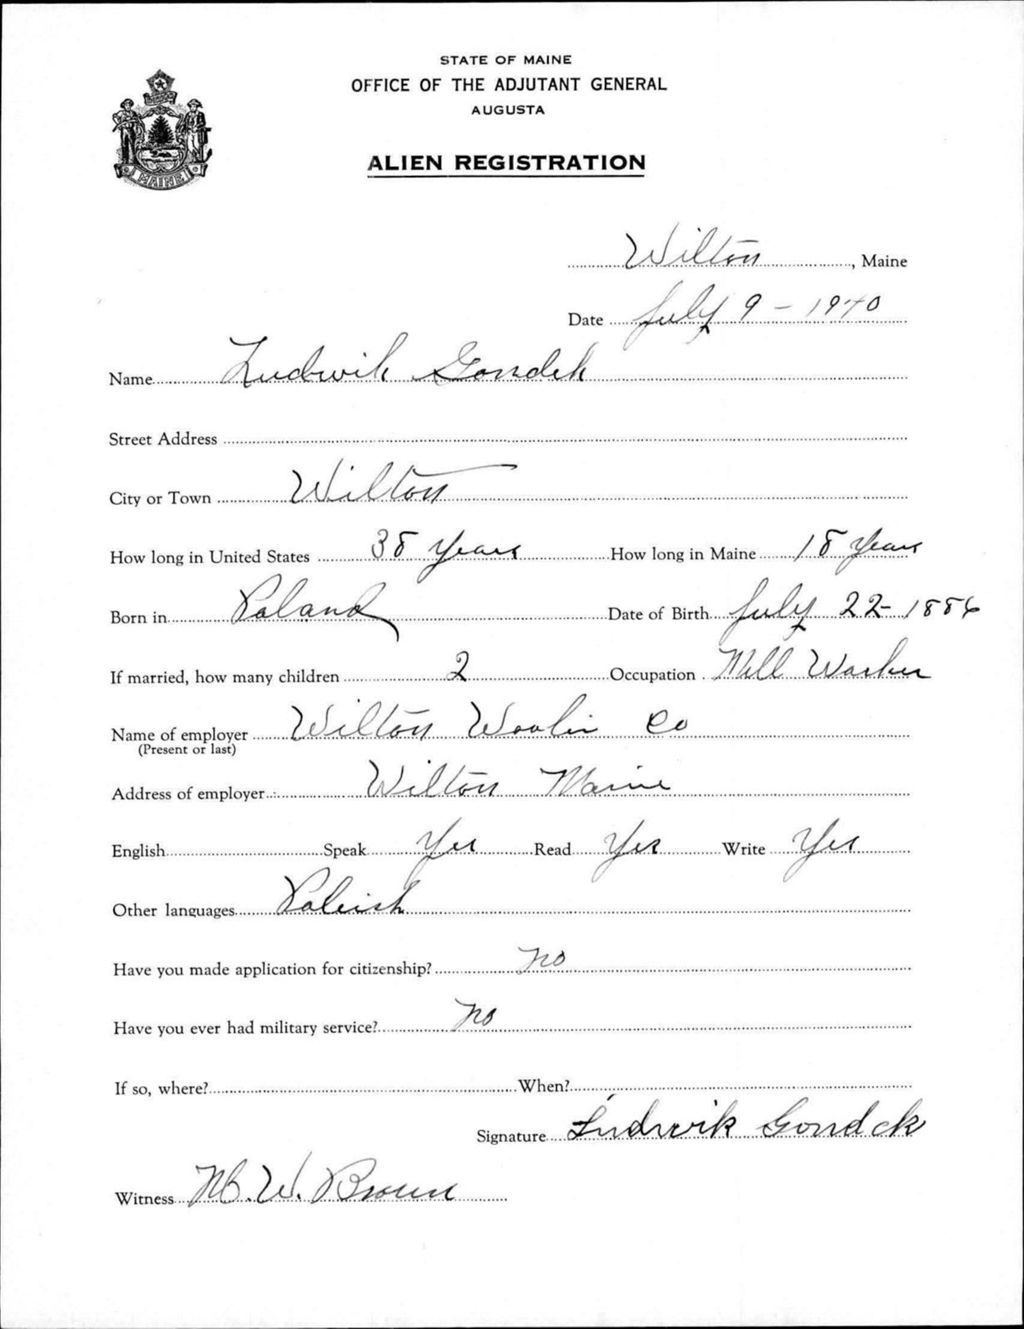 STATE OF MAINE
OFFICE OF THE ADJUTANT GENERAL
AUGUSTA
ALIEN REGISTRATION
MAINE
Wilton, Maine
Date July 9 - 1940
Name Ludwik Gondek
Street Address
City or Town Wilton
How long in United States 38 Years How long in Maine 18 Years
Born in Poland Date of Birth July 22 - 1886
If married, how many children 2 Occupation Mill Worker
Name of employer Wilton Woolin Co
(Present or last)
Address of employer Wilton Maine
English Speak Yes Read Yes Write Yes
Other languages Poleish
Have you made application for citizenship? No
Have you ever had military service? No
If so, where? When?
Signature Ludwik Gondek
Witness M. W. Brown